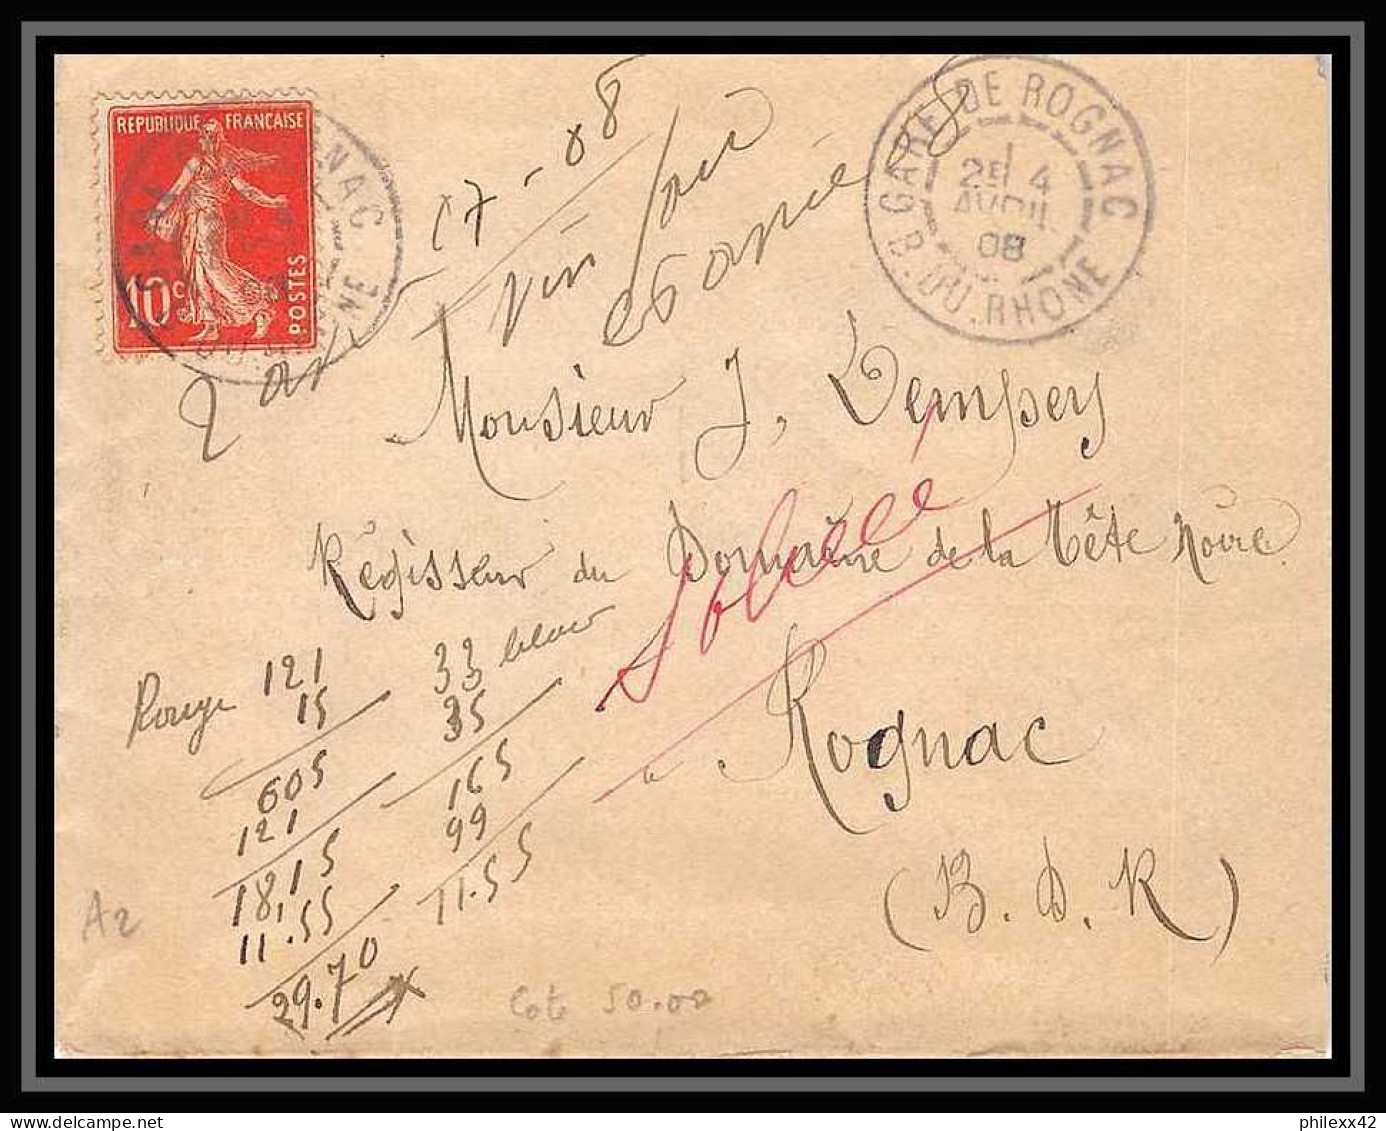 REPUBLIQUE FRANÇAISE
10c
POSTES
GARE DE ROGNAC
2E 4
AVRIL
08
B. DU. RHONE
Monsieur J. Dempsey
Régisseur du Domaine de la Tête Noire
à Rognac
(B. D. R)
Rouge 121
15
605
121
18,15
11.55
29.70
33 blanc
35
165
99
11.55
A2
Cote 50.00
philexx42